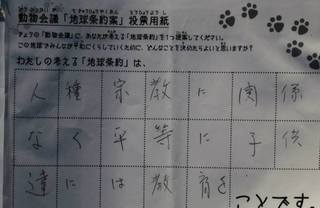 動物会議「地球条約案」投票用紙
きょうの「動物会議」に、あなたが考える「地球条約」を1つ提案してください。
この地球でみんなが平和にくらしていくために、どんなことを決めたらよいと思いますか?
わたしの考える「地球条約」は、
人種宗教に関係
なく平等に子供
達には教育を
ことです。